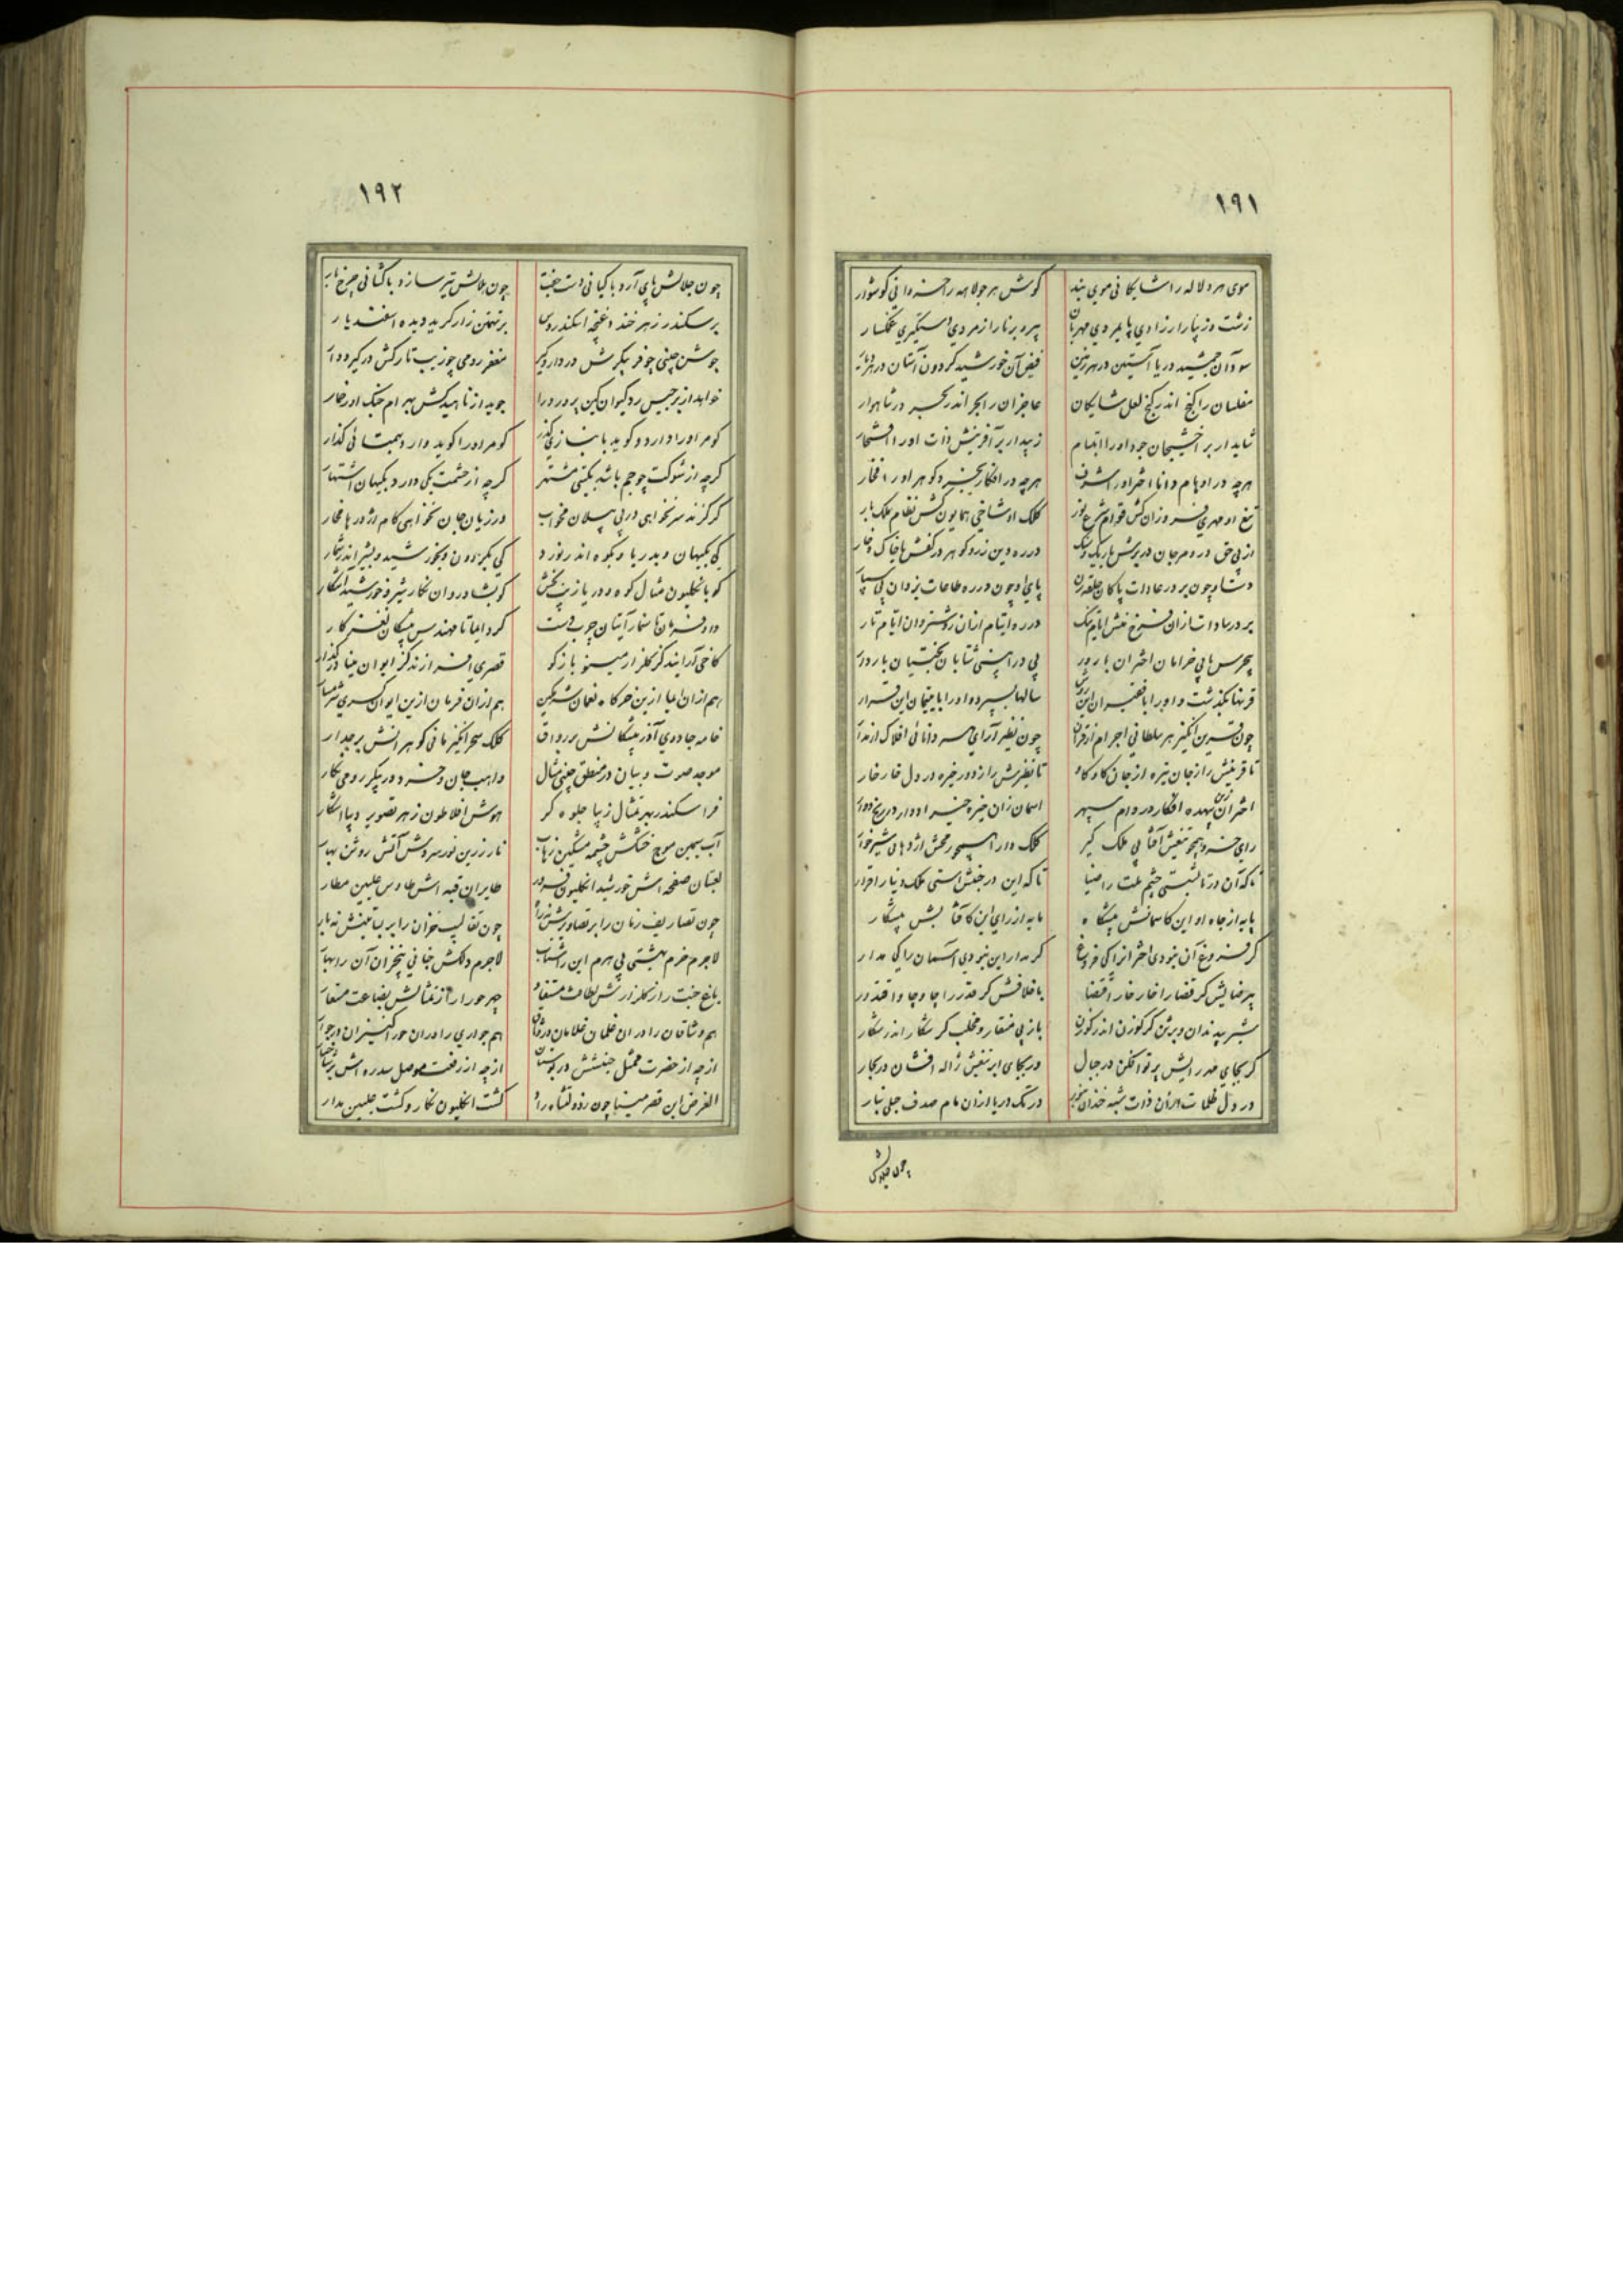 ۱۹۱
موی هر دلاله را شایگانی موی بند گوش هر جولاهه را خسروانی گوشوار
زشت و زیبا را ز رادی پایمردی مهربان پیر و برنا را ز مردی دستگیری غمگسار
سود آن جمشید دریا آستین در هر زمین فیض آن خورشید گردون آستان در هر دیار
مفلسان را گنج اندر گنج لعل شایگان عاجزان را بحر اندر بحر در شاهوار
شاید ار بر آخشیجان جود او را ابتسام زیبد ار بر آفرینش ذات او را افتخار
هرچه در اوهام دانا اختر او را شرف هرچه در افکار بخرد گوهر او را فخار
تیغ او مهری فروزان کش قوام شرع نور کلک او شاخی همایون کش نظام ملک بار
از پی حق در و مرجان در برش با ریگ و سنگ در ره دین زر و گوهر در کفش با خاک و خار
دست او چون بر در عادات پاکان حلقه زن پای او چون در ره طاعات یزدان پی سپار
بر در سادات ازان فرخ منش ایام تنگ در ره ایتام ازان روشن روان ایام تار
بی جرس هایی خرامان اختران بار در پی در آهستی شتابان بختیان باردار
قرنها بگذشت و او را با فقیران این روش سالها بسپرده او را با یتیمان این قرار
چون قرین انگیز هر سلطانی اجرام از قران چون نظیر آرای هر دانائی افلاک از مدار
تا قرینش را ز جان تیره از جان کاو کاو تا نظیرش را ز دور خیره در دل خار خار
اختران زین بیهده افکار در دام سپهر آسمان زان خیره خیر ادوار در رنج دوار
رای خسرو همچو تیغش آفتابی ملک گیر کلک دارا همچو رمحش اژدهایی شیرخوار
تا که آن در تابشستی چشم ملت را ضیا تا که این در جنبش استی ملک دنیا را قرار
پایه از جاه او این کاسمانش پیشگاه مایه از رای این کافتابش پیشکار
گر فروغ آن نبودی اختران را کی فروغ گر مدار این نبودی آسمان را کی مدار
بیرضایش گر قضا را خار خار اقتضا باخلافش گر قدر را چاو چاو اقتدار
شیر بیدندان و برثن گر گوزن اندر گوزن باز بی منقار و مخلب گر شکار اندر شکار
گر بجای مهر رایش پرتو افکن در جبال ور بجای ابر تیغش ژاله افشان در بحار
در دل ظلمات ازان ذات شبه خندان در تک دریا ازان مام صدف حبلی بنار
چون جلالش
۱۹۲
چون جلالش پای آرد با کیانی دست تخت چون جلالش تیر سازد با کشانی چرخ
بر سکندر زهر خندد غنچه اسکندروس بر تهمتن زار گرید دیده اسفندیار
جوشن چینی چو فر پیکرش در دار و گیر مغفر رومی چو زیب تارکش در گیر و دار
خواهد از برجیس رد کیوان کین پرور در جوید از ناهید کش بهرام جنگ اور خمار
گو مر او را دارد و گوید با گو مر او را گوید و دارد بهمتائی گذار
گرچه از شوکت چو جم باشد بگیتی مشتهر گرچه از حشمت چو کی دارد بگیهان اشتهار
گر گزند سر نخواهی در پی پیلان مخواب ور زیان جان نخواهی کام اژدرها مخار
کی بگیهان و بدریا و بکوه اندر نورد کی بگردون و بخورشید و بشیر اندر شمار
کو بانگلیون مثال کوه و دریا زیب بخش کو بشادروان نگار شیر و خورشید آشکار
داد فرمان تا سنمار آیتان چرب دست کرد ایما تا مهندس پیشگان نغز کار
کاخی آرایند کز گلزار مینو باز گو قصری افرازند کز ایوان مینا درگذار
هم ازان ایما ازین خرگاه نعمان شرمگین هم ازان فرمان ازین ایوان کسری شرمسار
خامه جادوی آذر پیشگانش بر رواق کلک سحر انگیز مانی گوهرانش بر جدار
موجد صوت و بیان در منطق چینی مثال واهب جان و خرد در پیکر رومی نگار
فر اسکندر بهر تمثال زیبا جلوه گر هوش افلاطون ز هر تصویر دیبا آشکار
آب سیمین موج خشتش چشمه مشکین زهاب نار زرین نور سردش آتش روشن بهار
لعبتان صفحه اش خورشید انگلیون فروز طایران قبه اش طاوس علیین مطار
چون تصاریف زمان را بر تصاویرش نه راه چون تقالیب خزان را بر بساتینش نه بار
لاجرم خرم بهشتی بی هرم این را شتاب لاجرم دلکش جنانی بیخزان آن را بهار
باغ جنت را ز گلزارش لطافت مستفاد چهر حورا را ز تمثالش بضاعت مستعار
هم وشاقان را دران غلمان غلامان در وثاق هم جواری را دران حورا کنیزان در جوار
ازچه از حضرت ممثل جنتش در بوستان ازچه از رفعت موصل سدره اش بر شاخسار
الغرض این قصر مینا چون ز دولتشاه راد گشت انگلیون نگار و گشت علیین مدار